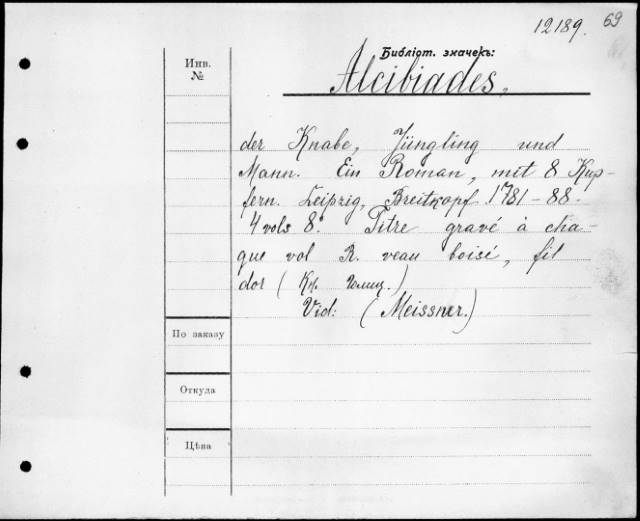 12189. 69
Библіот. значекъ:
Инв.
№
Alcibiades,
der Knabe, Jüngling und
Mann. Ein Roman, mit 8 Kup-
fern. Leipzig, Breitkopf 1781-88.
4 vols 8°. Titre gravé à cha-
que vol R. veau boisé, fil
dor (Кн. Голиц.)
Vid: (Meissner.)
По заказу
Откуда
Цѣна